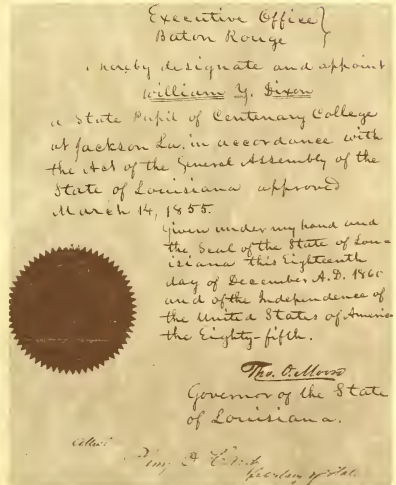 Executive Office}
Baton Rouge
I hereby designate and appoint
William Y. Dixon
a State Pupil of Centenary College
at Jackson La. in accordance with
the Act of the General Assembly of the
State of Louisiana approved
March 14, 1855.
Given under my hand and
the Seal of the State of Lou=
isiana this Eighteenth
day of December A.D. 1860
and of the Independence of
the United States of America
the Eighty-fifth.
Tho. O. Moore
Governor of the State
of Louisiana.
Attest
Secretary of State